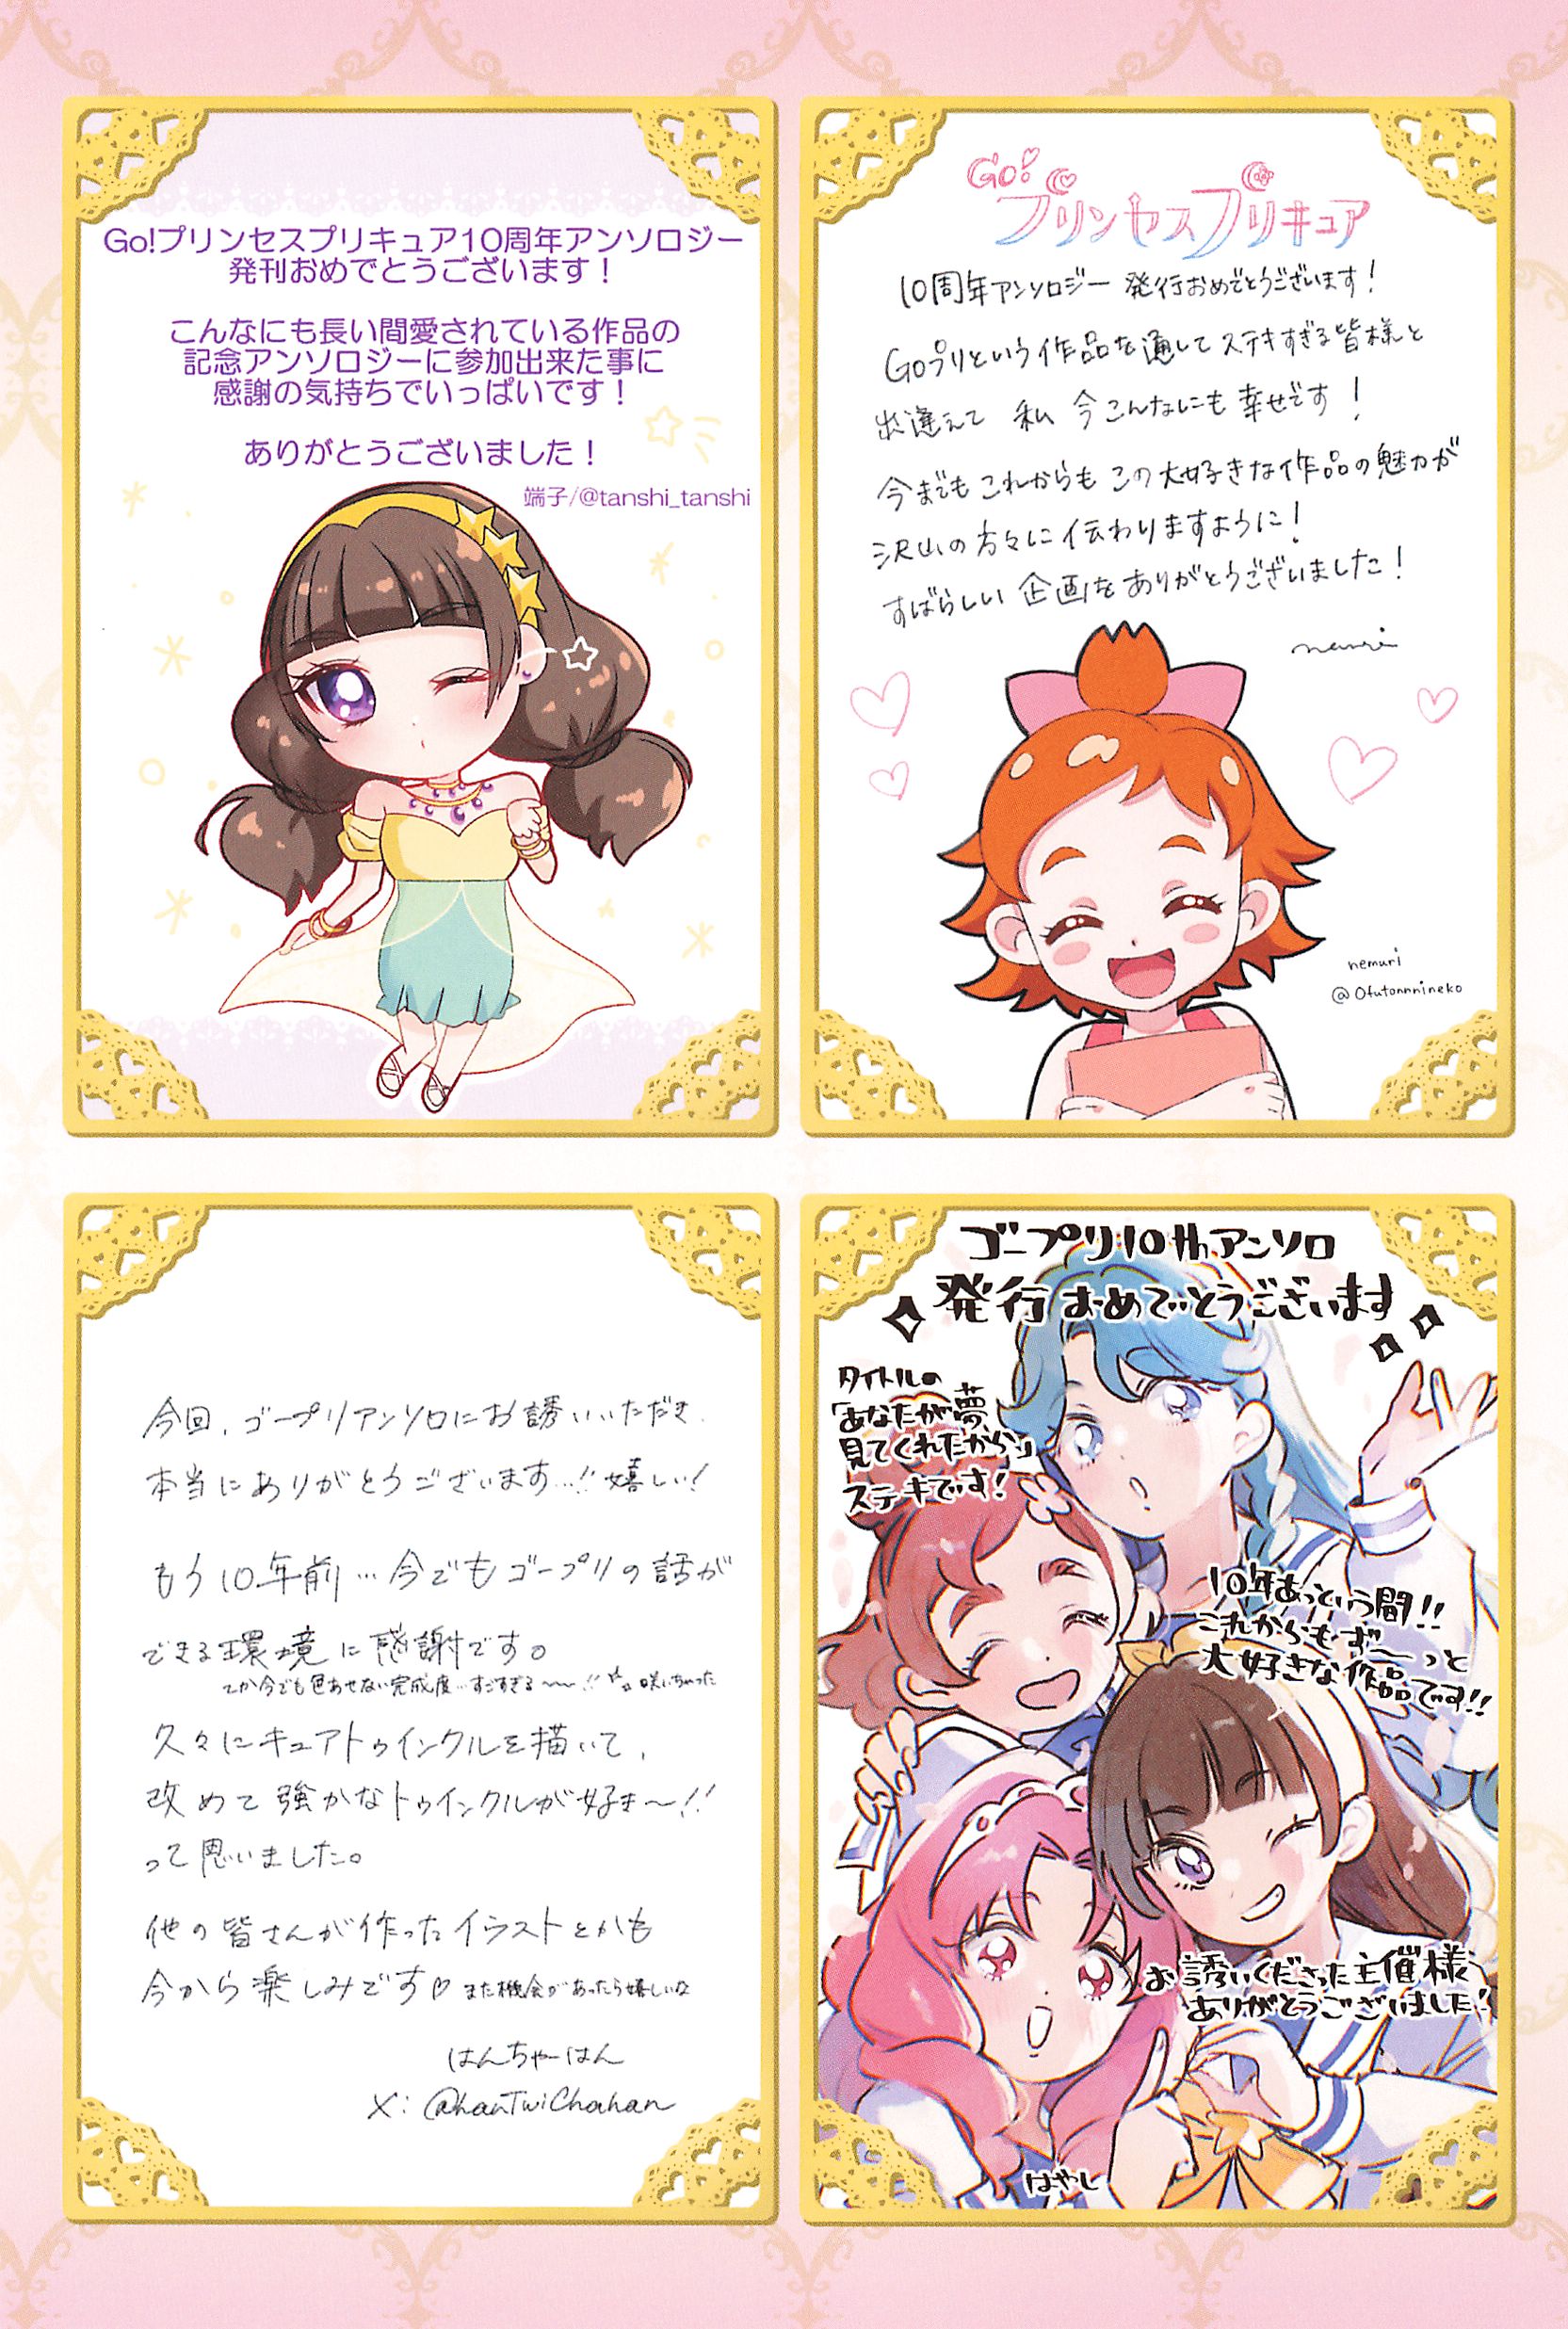 Go!プリンセスプリキュア10周年アンソロジー
発刊おめでとうございます！
こんなにも長い間愛されている作品の
記念アンソロジーに参加出来た事に
感謝の気持ちでいっぱいです！
ありがとうございました！
端子/@tanshi_tanshi
Go!
プリンセスプリキュア
10周年アンソロジー 発行おめでとうございます!
Goプリという作品を通してステキすぎる皆様と
出逢えて 私 今こんなにも幸せです!
今までもこれからも この大好きな作品の魅力が
沢山の方々に伝わりますように!
すばらしい企画をありがとうございました!
nemuri
nemuri
@Ofutonnnineko
今回、ゴープリアンソロにお誘いいただき、
本当にありがとうございます…!! 嬉しい!
もう10年前…今でもゴープリの話が
できる環境に感謝です。
てか今でも色あせない完成度…すごすぎる〜〜!!
久々にキュアトゥインクルを描いて、
改めて強かなトゥインクルが好き〜!!
って思いました。
他の皆さんが作ったイラストとかも
今から楽しみです♡ また機会があったら嬉しいな
はんちゃーはん
X: @hanTwiChahan
ゴープリ10thアンソロ
発行おめでとうございます
タイトルの
「あなたが夢、
見てくれたから」
ステキです!
10年あっという間!!
これからもず〜っと
大好きな作品です!!
お誘いくださった主催様
ありがとうございました!
はやし